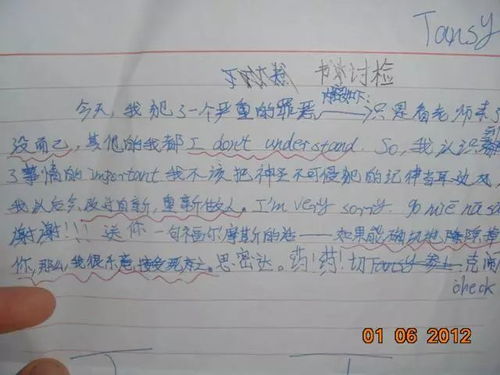 Tansy
讨检
今天,我犯了一个严重的罪恶——只是看老师来了
没而已,其他的我都I don't understand. So,我认识
了事情的important.我不该把神圣不可侵犯的纪神当耳边风,
我以后会改过自新,重新做人。I'm very sorry.
谢谢!!!送你一句福尔摩斯的话——如果能确切地
你,那么,我很乐意接受死亡。思密达。药!药!切Tansy
check
01 06 2012